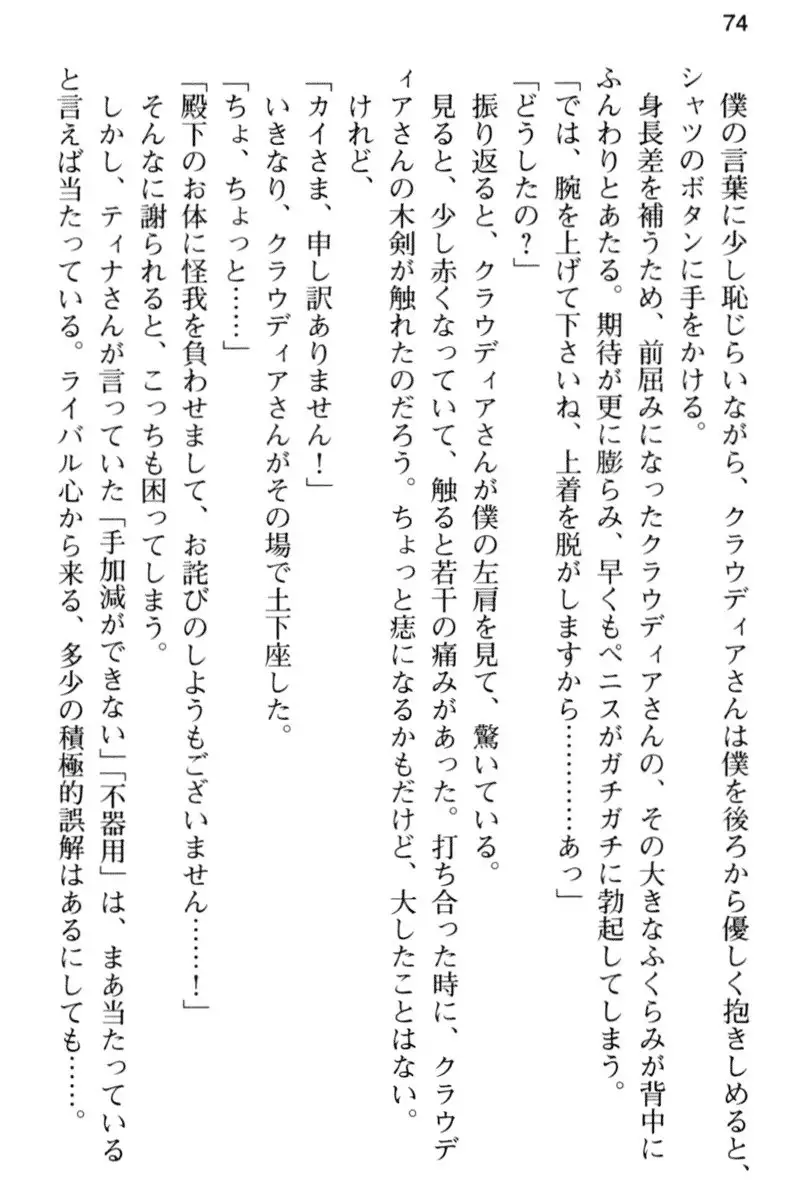 74
僕の言葉に少し恥じらいながら、クラウディアさんは僕を後ろから優しく抱きしめると、
シャツのボタンに手をかける。
身長差を補うため、前屈みになったクラウディアさんの、その大きなふくらみが背中に
ふんわりとあたる。期待が更に膨らみ、早くもペニスがガチガチに勃起してしまう。
「では、腕を上げて下さいね、上着を脱がしますから…………あっ」
「どうしたの？」
振り返ると、クラウディアさんが僕の左肩を見て、驚いている。
見ると、少し赤くなっていて、触ると若干の痛みがあった。打ち合った時に、クラウデ
ィアさんの木剣が触れたのだろう。ちょっと痣になるかもだけど、大したことはない。
けれど、
「カイさま、申し訳ありません！」
いきなり、クラウディアさんがその場で土下座した。
「ちょ、ちょっと……」
「殿下のお体に怪我を負わせまして、お詫びのしようもございません……！」
そんなに謝られると、こっちも困ってしまう。
しかし、ティナさんが言っていた「手加減ができない」「不器用」は、まあ当たっている
と言えば当たっている。ライバル心から来る、多少の積極的誤解はあるにしても……。